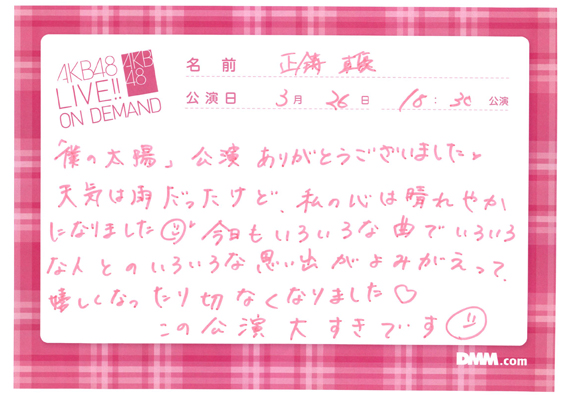 AKB48
LIVE!!
ON DEMAND
AKB
48
名前 正鋳 真長
公演日 3月 26日 18:30 公演
「僕の太陽」公演 ありがとうございました♪
天気は雨だったけど、私の心は晴れやか
になりました 今日もいろいろな曲でいろいろ
な人とのいろいろな思い出がよみがえって、
嬉しくなったり切なくなりました♡
この公演大すきです
DMM.com